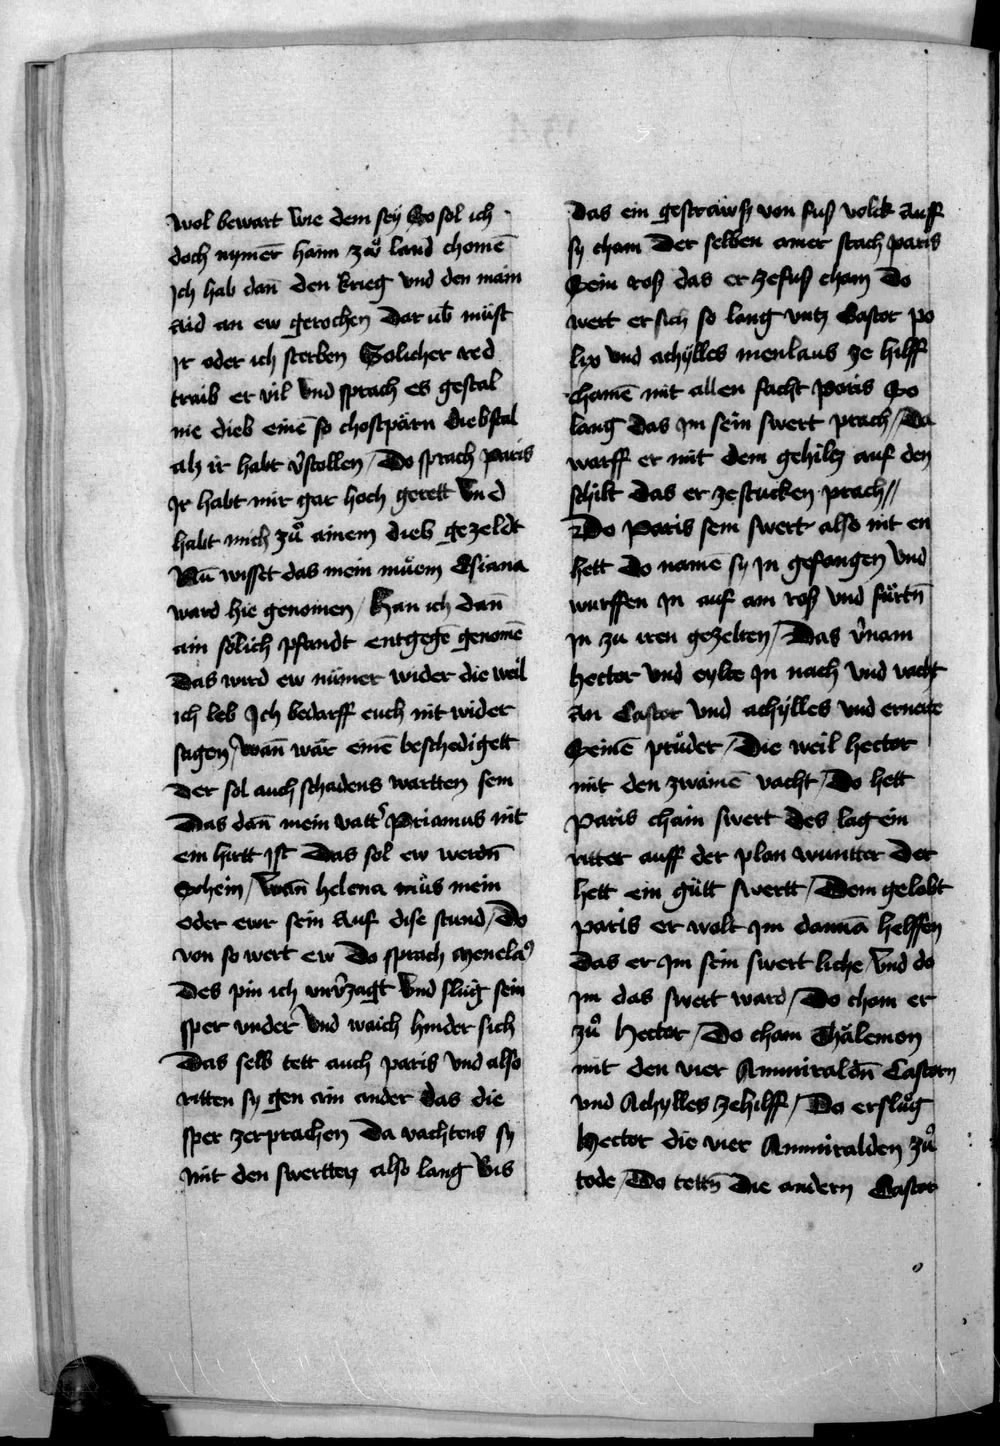 wol bewart wie dem sey So sol ich
doch nymer̄ haim zů land chomē
Ich hab dan̄ den krieg vnd den main
aid an ew gerochen Dar ub̄ müst
Ir oder ich sterben Solicher red
traib er vil Vnd sprach es gestal
nie dieb einē so chostpärn diebstal
als ir habt v̄stollen / Do sprach paris
Ir habt mir gar hoch gerett Vnd
habt mich zů ainem dieb gezeldt
Nū wisset das mein müem Esiana
ward hie genomen / Han ich dan̄
ain sölich pfandt entgegē genomē
Das wird ew nümer wider die weil
ich leb Ich bedarff euch nit wider
sagen / wan̄ wär einē beschedigett
Der sol auch schadens wartten sein
Das dan̄ mein vatt̄ Priamus nit
ein hirtt ist Das sol ew werdn̄
Schein / Wan̄ helena müs mein
oder ewr sein Auf dise stund / Do
von so wert ew Do sprach Menelaꝰ
Des pin ich vnv̄zagt Vnd slug sein
sper vnder Vnd waich hinder sich
Das selb tett auch paris Vnd also
ritten sy gen ain ander das die
sper zerprachen Da vachtens sy
mit den swertten also lang Bis
das ein gesträwsz von fuß volck auff
sy cham Der selben ainer stach paris
Sein roß das er zefuß cham Do
wert er sich so lang vntz Castor po
lix vnd achylles menlaus ze hilff
chamē mit allen facht Paris So
lang das im sein swert prach / Da
warff er mit dem gehiltz auf den
schilt das er zestucken prach //
Do Paris sein swert also nit en
hett Do namē sy in gefangen Vnd
wurffen in auf ain roß vnd fürtn̄
in zu iren gezelten / Das v̄nam
hector Vnd eylte in nach vnd vacht
an Castor vnd achylles vnd ernerte
Seinē prüder / Die weil hector
mit den zwainē vacht / Do hett
Paris chain swert des lag ein
ritter auff der plan wuntter Der
hett ein gütt swertt / Dem gelobt
paris er wolt im dannā helffen
Das er im sein swert liche / Vnd do
im das swert ward / Do cham er
zů Hector / Do cham Thälemon
mit den vier Ammiraldn̄ Castorn
vnd Achylles zehilff / Do erslůg
Hector die vier Ammiralden zů
tode / Do tettn̄ Die andern Castor